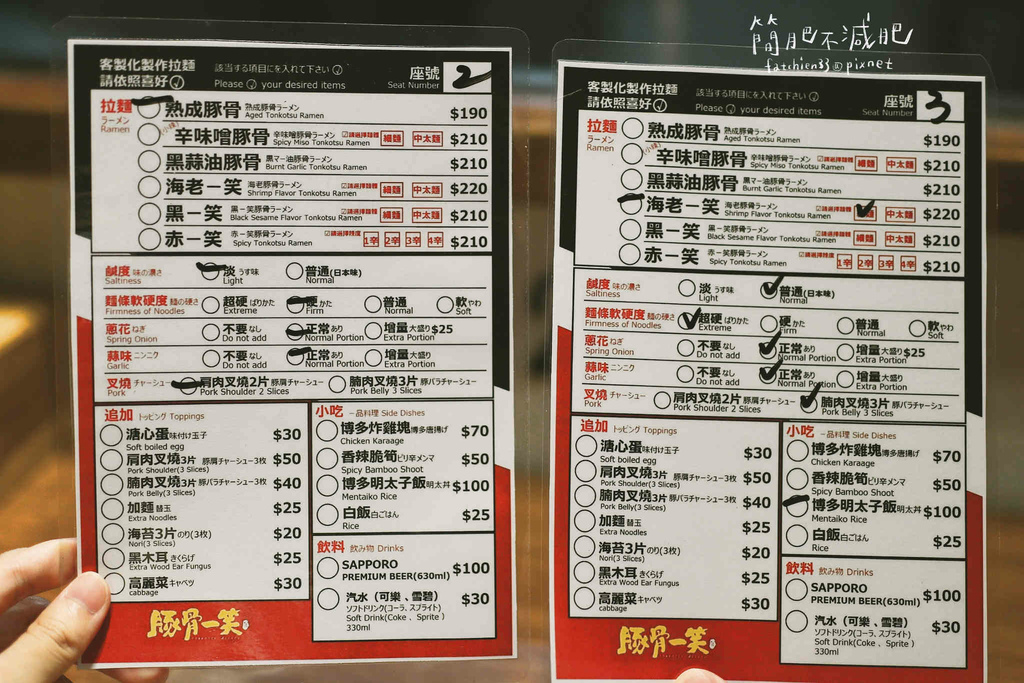 簡肥不減肥
fatchien33@pixnet
客製化製作拉麵 該当する項目にを入れて下さい 座號 2
請依照喜好 Please your desired items Seat Number
拉麵 ラーメン Ramen
熟成豚骨 熟成豚骨ラーメン Aged Tonkotsu Ramen $190
辛味噌豚骨 辛味噌豚骨ラーメン Spicy Miso Tonkotsu Ramen 請選擇麵種 細麵 中太麵 $210
黑蒜油豚骨 黒マー油豚骨ラーメン Burnt Garlic Tonkotsu Ramen $210
海老一笑 海老豚骨ラーメン Shrimp Flavor Tonkotsu Ramen 請選擇麵種 細麵 中太麵 $220
黑一笑 黒一笑豚骨ラーメン Black Sesame Flavor Tonkotsu Ramen 請選擇麵種 細麵 中太麵 $210
赤一笑 赤一笑豚骨ラーメン Spicy Tonkotsu Ramen 請選擇辣度 1辛 2辛 3辛 4辛 $210
鹹度 味の濃さ Saltiness 淡 うす味 Light 普通(日本味) Normal
麵條軟硬度 麺の硬さ Firmness of Noodles 超硬 ばりかた Extreme 硬 かた Firm 普通 Normal 軟 やわ Soft
蔥花 ねぎ Spring Onion 不要 なし Do not add 正常 あり Normal Portion 增量 大盛り $25 Extra Portion
蒜味 ニンニク Garlic 不要 なし Do not add 正常 あり Normal Portion 增量 大盛り Extra Portion
叉燒 チャーシュー Pork 肩肉叉燒2片 豚肩チャーシュー Pork Shoulder 2 Slices 腩肉叉燒3片 豚バラチャーシュー Pork Belly 3 Slices
追加 トッピング Toppings
溏心蛋 味付け玉子 Soft boiled egg $30
肩肉叉燒3片 豚肩チャーシュー3枚 Pork Shoulder(3 Slices) $50
腩肉叉燒3片 豚バラチャーシュー3枚 Pork Belly(3 Slices) $40
加麵 替玉 Extra Noodles $25
海苔3片 のり(3枚) Nori(3 Slices) $20
黑木耳 きくらげ Extra Wood Ear Fungus $25
高麗菜 キャベツ cabbage $30
小吃 一品料理 Side Dishes
博多炸雞塊 博多唐揚げ Chicken Karaage $70
香辣脆筍 ピリ辛メンマ Spicy Bamboo Shoot $50
博多明太子飯 明太丼 Mentaiko Rice $100
白飯 白ごはん Rice $25
飲料 飲み物 Drinks
SAPPORO PREMIUM BEER(630ml) $100
汽水（可樂、雪碧） ソフトドリンク(コーラ、スプライト) Soft Drink(Coke 、Sprite ) 330ml $30
豚骨一笑
客製化製作拉麵 該当する項目にを入れて下さい 座號 3
請依照喜好 Please your desired items Seat Number
拉麵 ラーメン Ramen
熟成豚骨 熟成豚骨ラーメン Aged Tonkotsu Ramen $190
辛味噌豚骨 辛味噌豚骨ラーメン Spicy Miso Tonkotsu Ramen 請選擇麵種 細麵 中太麵 $210
黑蒜油豚骨 黒マー油豚骨ラーメン Burnt Garlic Tonkotsu Ramen $210
海老一笑 海老豚骨ラーメン Shrimp Flavor Tonkotsu Ramen 請選擇麵種 中太麵 $220
黑一笑 黒一笑豚骨ラーメン Black Sesame Flavor Tonkotsu Ramen 請選擇麵種 細麵 中太麵 $210
赤一笑 赤一笑豚骨ラーメン Spicy Tonkotsu Ramen 請選擇辣度 1辛 2辛 3辛 4辛 $210
鹹度 味の濃さ Saltiness 淡 うす味 Light 普通(日本味) Normal
麵條軟硬度 麺の硬さ Firmness of Noodles 超硬 ばりかた Extreme 硬 かた Firm 普通 Normal 軟 やわ Soft
蔥花 ねぎ Spring Onion 不要 なし Do not add 正常 あり Normal Portion 增量 大盛り $25 Extra Portion
蒜味 ニンニク Garlic 不要 なし Do not add 正常 あり Normal Portion 增量 大盛り Extra Portion
叉燒 チャーシュー Pork 肩肉叉燒2片 豚肩チャーシュー Pork Shoulder 2 Slices 腩肉叉燒3片 豚バラチャーシュー Pork Belly 3 Slices
追加 トッピング Toppings
溏心蛋 味付け玉子 Soft boiled egg $30
肩肉叉燒3片 豚肩チャーシュー3枚 Pork Shoulder(3 Slices) $50
腩肉叉燒3片 豚バラチャーシュー3枚 Pork Belly(3 Slices) $40
加麵 替玉 Extra Noodles $25
海苔3片 のり(3枚) Nori(3 Slices) $20
黑木耳 きくらげ Extra Wood Ear Fungus $25
高麗菜 キャベツ cabbage $30
小吃 一品料理 Side Dishes
博多炸雞塊 博多唐揚げ Chicken Karaage $70
香辣脆筍 ピリ辛メンマ Spicy Bamboo Shoot $50
博多明太子飯 明太丼 Mentaiko Rice $100
白飯 白ごはん Rice $25
飲料 飲み物 Drinks
SAPPORO PREMIUM BEER(630ml) $100
汽水（可樂、雪碧） ソフトドリンク(コーラ、スプライト) Soft Drink(Coke 、Sprite ) 330ml $30
豚骨一笑